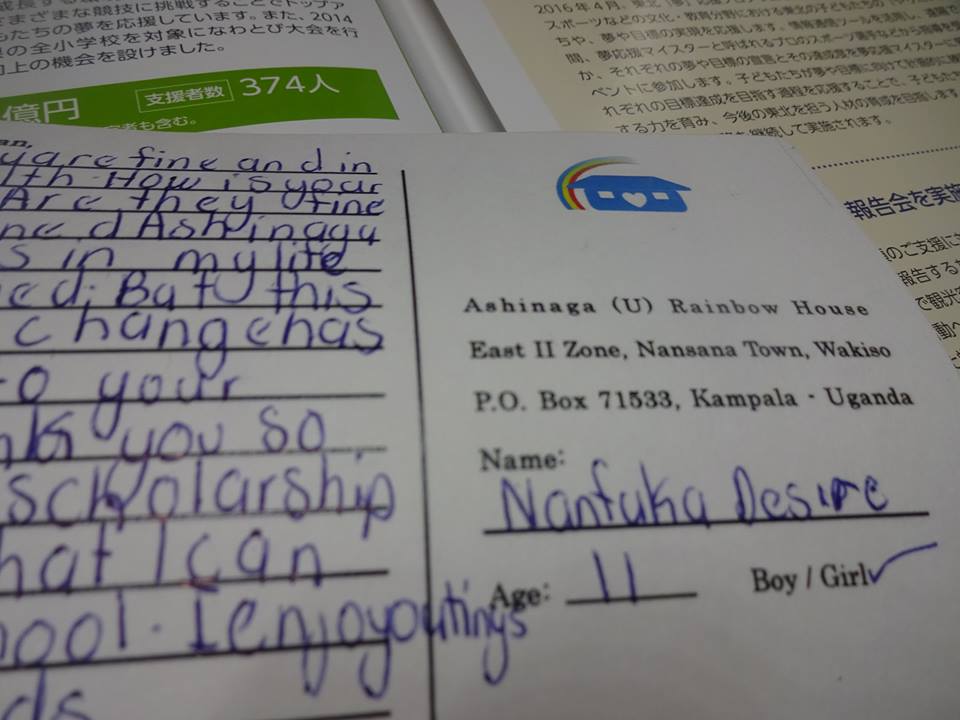 さまざまな競技に挑戦することでトップア
もたちの夢を応援しています。また、2014
の全小学校を対象になわとび大会を行
向上の機会を設けました。
億円
支援者数 374人
も含む。
2016年4月、東北
スポーツなどの文化・教育分野における東北の子どもたちの
ちや、夢や目標の実現を応援します。情報通信ツールを活用し、
間、夢応援マイスターと呼ばれるプロのスポーツ選手などから指導を
か、それぞれの夢や目標の宣言とその達成度を夢応援マイスターに
ベントに参加します。子どもたちが夢や目標に向けて
れぞれの目標達成を目指す過程を応援することで、子どもたち
する力を育み、今後の東北を担う人材の育成を目指します
継続して実施されます。
報告会を実施
のご支援に
報告する
で観光
動へ
an,
y are fine and in
lth. How is your
Are they fine
ned Ashinaga
s in my life
ed. But this
c hang e has
o your
nk you so
scholarship
hat I can
ool. I enjoy outings
ds
Ashinaga (U) Rainbow House
East II Zone, Nansana Town, Wakiso
P.O. Box 71533, Kampala - Uganda
Name:
Nantuka Desire
Age: 11 Boy / Girl ✓